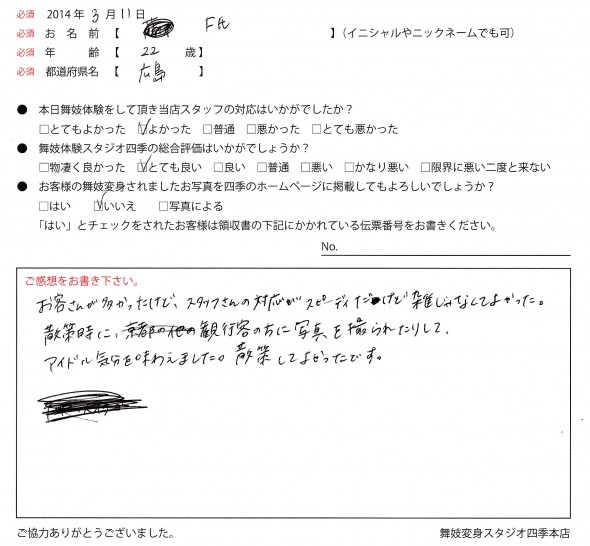 必須 2014年 3月 11日
必須 お 名 前 【 F氏 】(イニシャルやニックネームでも可)
必須 年 齢 【 22 歳】
必須 都道府県名 【 広島 】
● 本日舞妓体験をして頂き当店スタッフの対応はいかがでしたか?
□とてもよかった ☑よかった □普通 □悪かった □とても悪かった
● 舞妓体験スタジオ四季の総合評価はいかがでしょうか?
□物凄く良かった ☑とても良い □良い □普通 □悪い □かなり悪い □限界に悪い二度と来ない
● お客様の舞妓変身されましたお写真を四季のホームページに掲載してもよろしいでしょうか?
□はい ☑いいえ □写真による
「はい」とチェックをされたお客様は領収書の下記にかかれている伝票番号をお書きください。
No.
ご感想をお書き下さい。
お客さんが多かったけど、スタッフさんの対応がスピーディだけど雑じゃなくてよかった。
散策時に、京都の他の観行客の方に写真を撮られたりして、
アイドル気分を味わえました。散策してよかったです。
ご協力ありがとうございました。
舞妓変身スタジオ四季本店